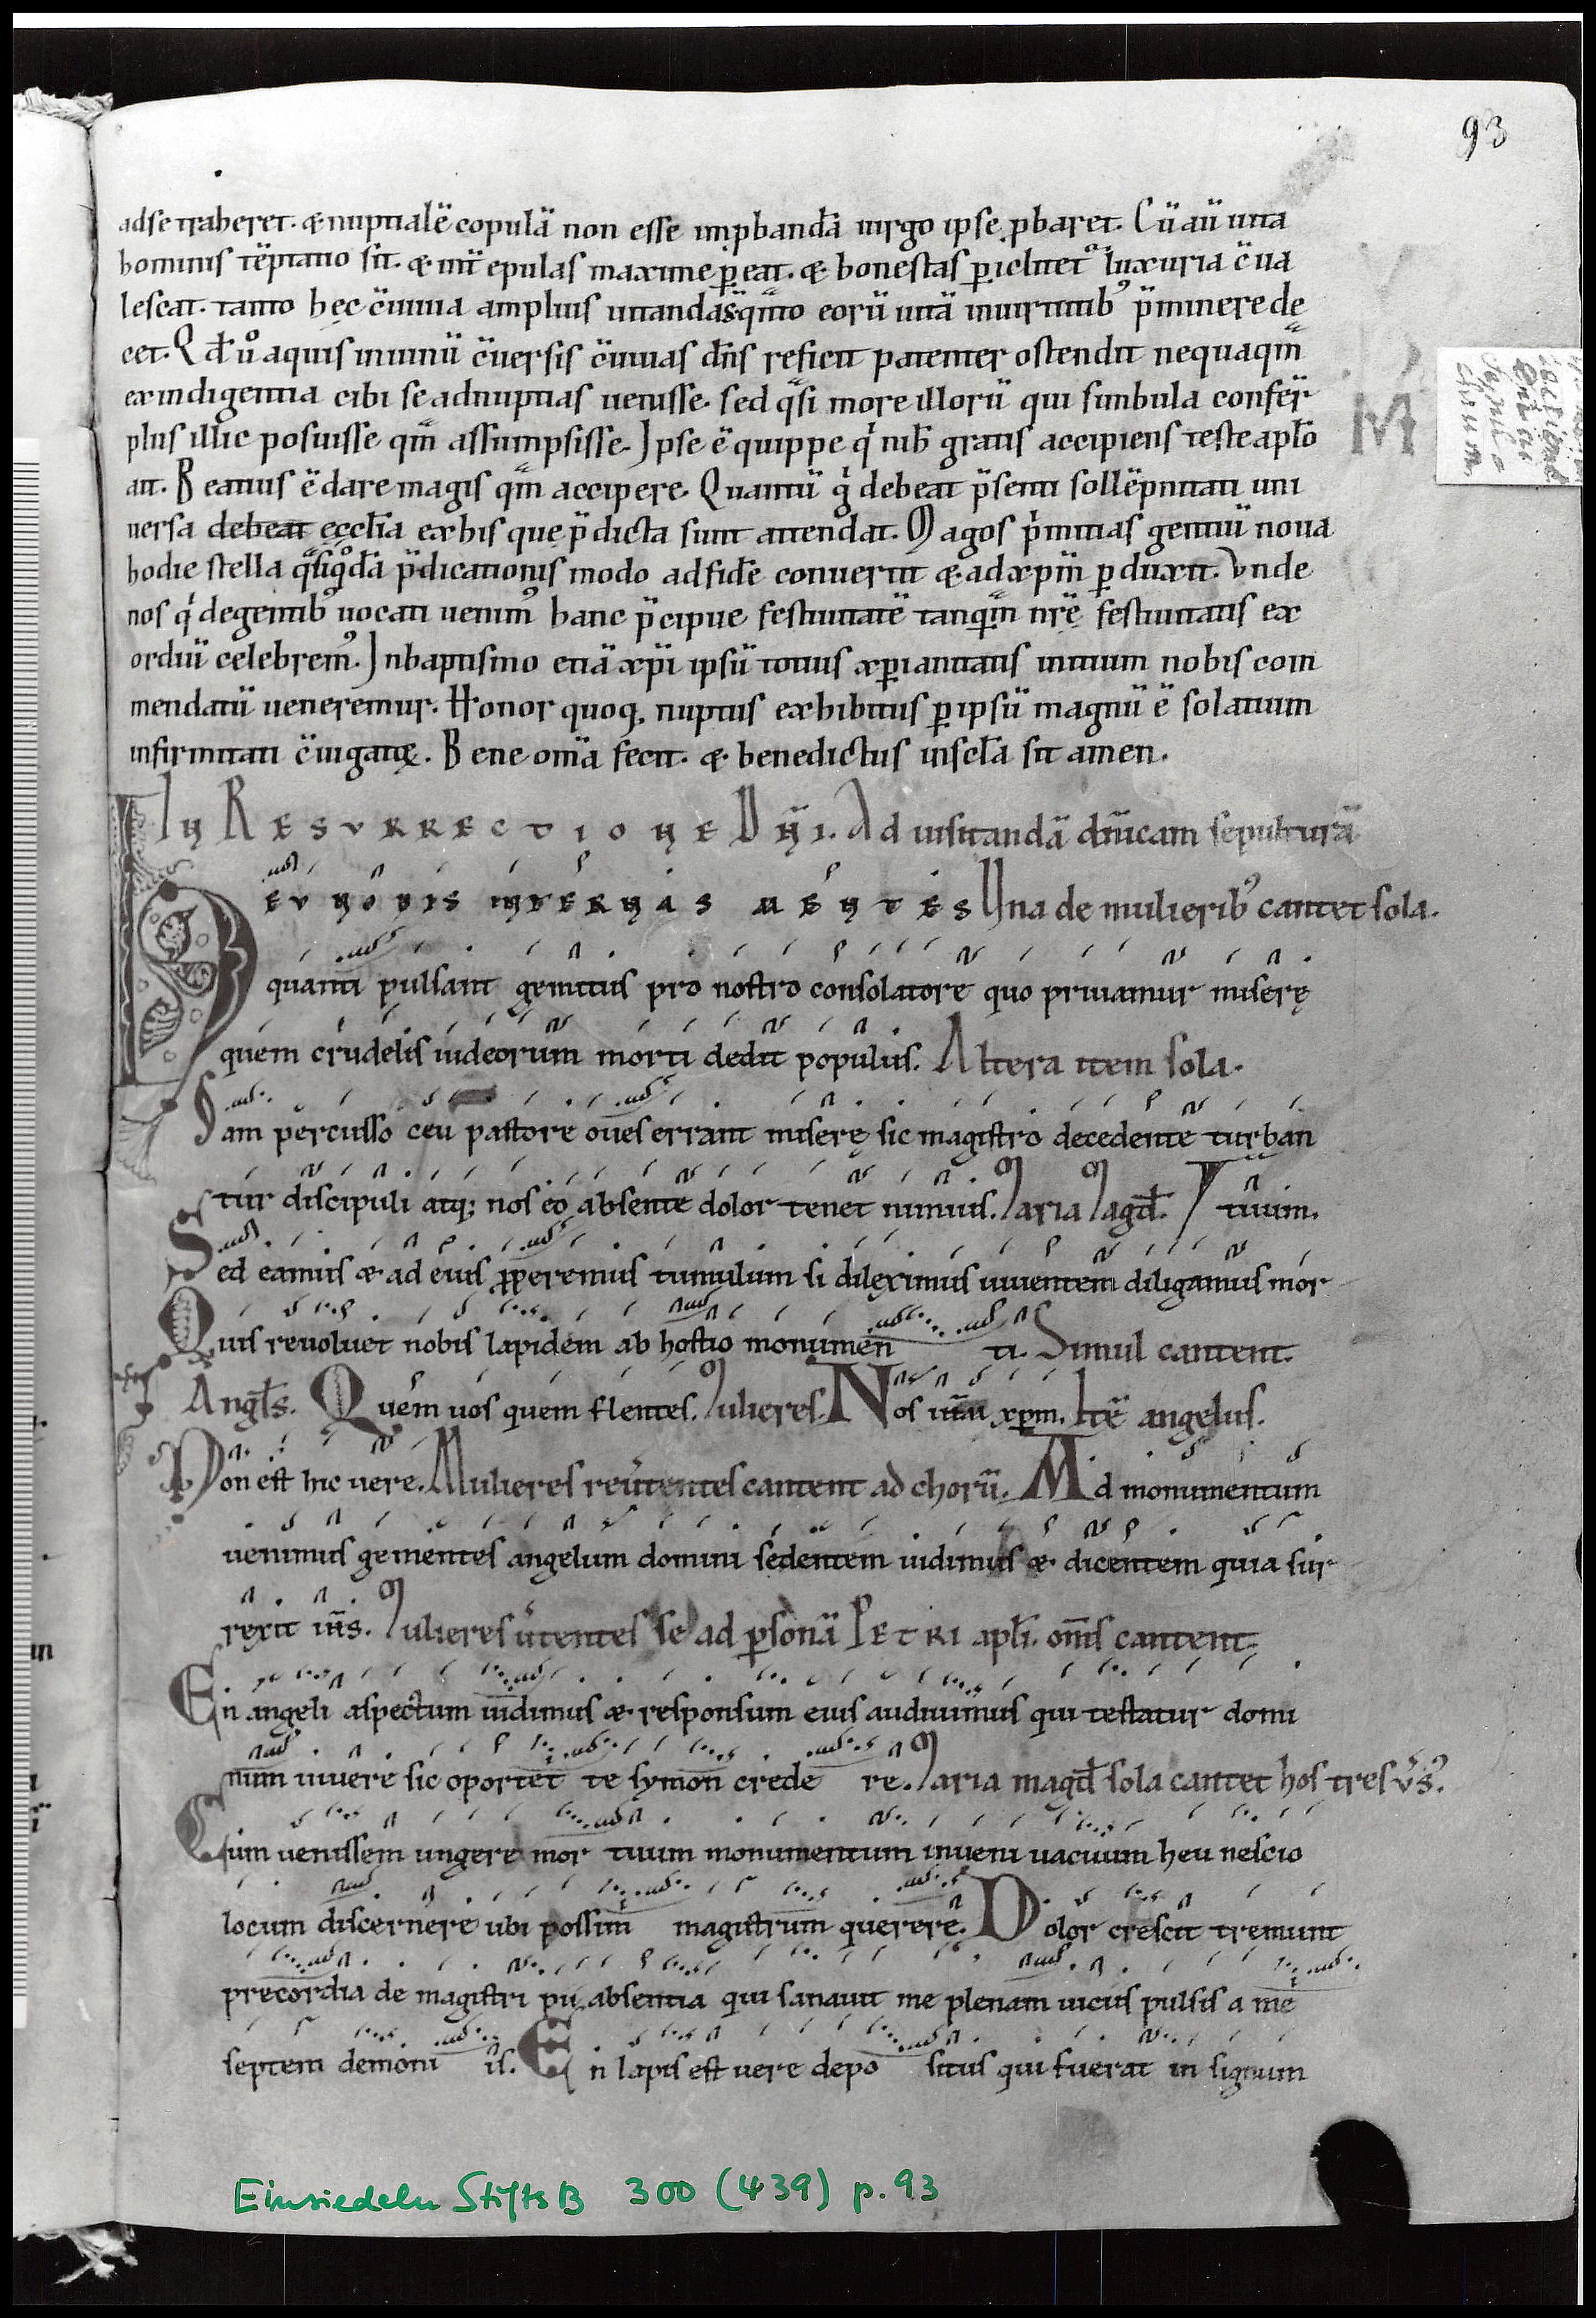 93
ad se traheret. & nuptialē copulā non esse inp̱bandā uirgo ipse p̱baret. Cū aū uita
hominis tēptatio sit. & int̄ epulas maxime p̱eat. & honestas p̱iclitet᷑ luxuria c̄ua
lescat. tanto hec c̄uiuia amplius uitanda s̄ qn̄to eorū uitā in uirtutib; p̄minere de
cet. Qd̄ ů aquis in uinū c̄uersis c̄uiuas dn̄s reficit patenter ostendit nequaqm̄
ex indigentia cibi se ad nuptias uenisse. sed qͣsi more illorū qui simbula confer̄
plus illic posuisse qm̄ assumpsisse. Ipse ē quippe qͥ nib̄ gratis accipiens teste apl̄o
ait. Beatius ē dare magis qm̄ accipere. Quantū gͥ debeat p̄senti sollēpnitati uni
uersa debeat eccl̄ia ex his que p̄dicta sunt attendat. Magos pͥmitias gentiū noua
hodie stella qͣsi qͦdā p̄dicationis modo ad fidē conuertit & ad xp̄m p̱duxit. Vnde
nos qͥ de gentib; uocati uenim᷒ hanc p̄cipue festiuitatē tanqm̄ nr̄ę festiuitatis ex
ordiū celebrem᷒. In baptismo etiā xp̄i ipsū totius xp̱ianitatis initium nobis com
mendatū ueneremur. Honor quoq; nuptiis exhibitus p̱ ipsū magnū ē solatium
infirmitati c̄iugatię. Bene om̄a fecit. & benedictus in scl̄a sit amen.
In Resurrectione Dn̄i. Ad uisitandā dn̄icam sepulturā
Heu nobis internas mentes Una de mulierib᷒ cantet sola.
quanti pulsant gemitus pro nostro consolatore quo priuamur miserę
quem crudelis iudeorum morti dedit populus. Altera item sola.
Iam percusso ceu pastore oues errant miserę sic magistro decedente turban
tur discipuli atq; nos eo absente dolor tenet nimius. Maria Magd̄. tuum.
Sed eamus & ad eius p̱peremus tumulum si dileximus uiuentem diligamus mor
Quis reuoluet nobis lapidem ab hostio monumen ti. Simul cantent.
Angl̄s. Quem uos quem flentes. Mulieres. Nos ih̄m xp̄m. Itē angelus.
Non est hic uere. Mulieres reūtentes cantent ad chorū. Ad monumentum
uenimus gementes angelum domini sedentem uidimus & dicentem quia sur
rexit ih̄s. Mulieres ūtentes se ad p̱sonā Petri apl̄i. om̄s cantent.
En angeli aspectum uidimus & responsum eius audiuimus qui testatur domi
num uiuere sic oportet te symon crede re. Maria magd̄ sola cantet hos tres v̄s᷒.
Cum uenissem ungere mor tuum monumentum inueni uacuum heu nescio
locum discernere ubi possim magistrum querere. Dolor crescit tremunt
precordia de magistri pii absentia qui sanauit me plenam uiciis pulsis a me
septem demoni is. En lapis est uere depo situs qui fuerat in signum
Einsiedeln StiftsB 300 (439) p. 93